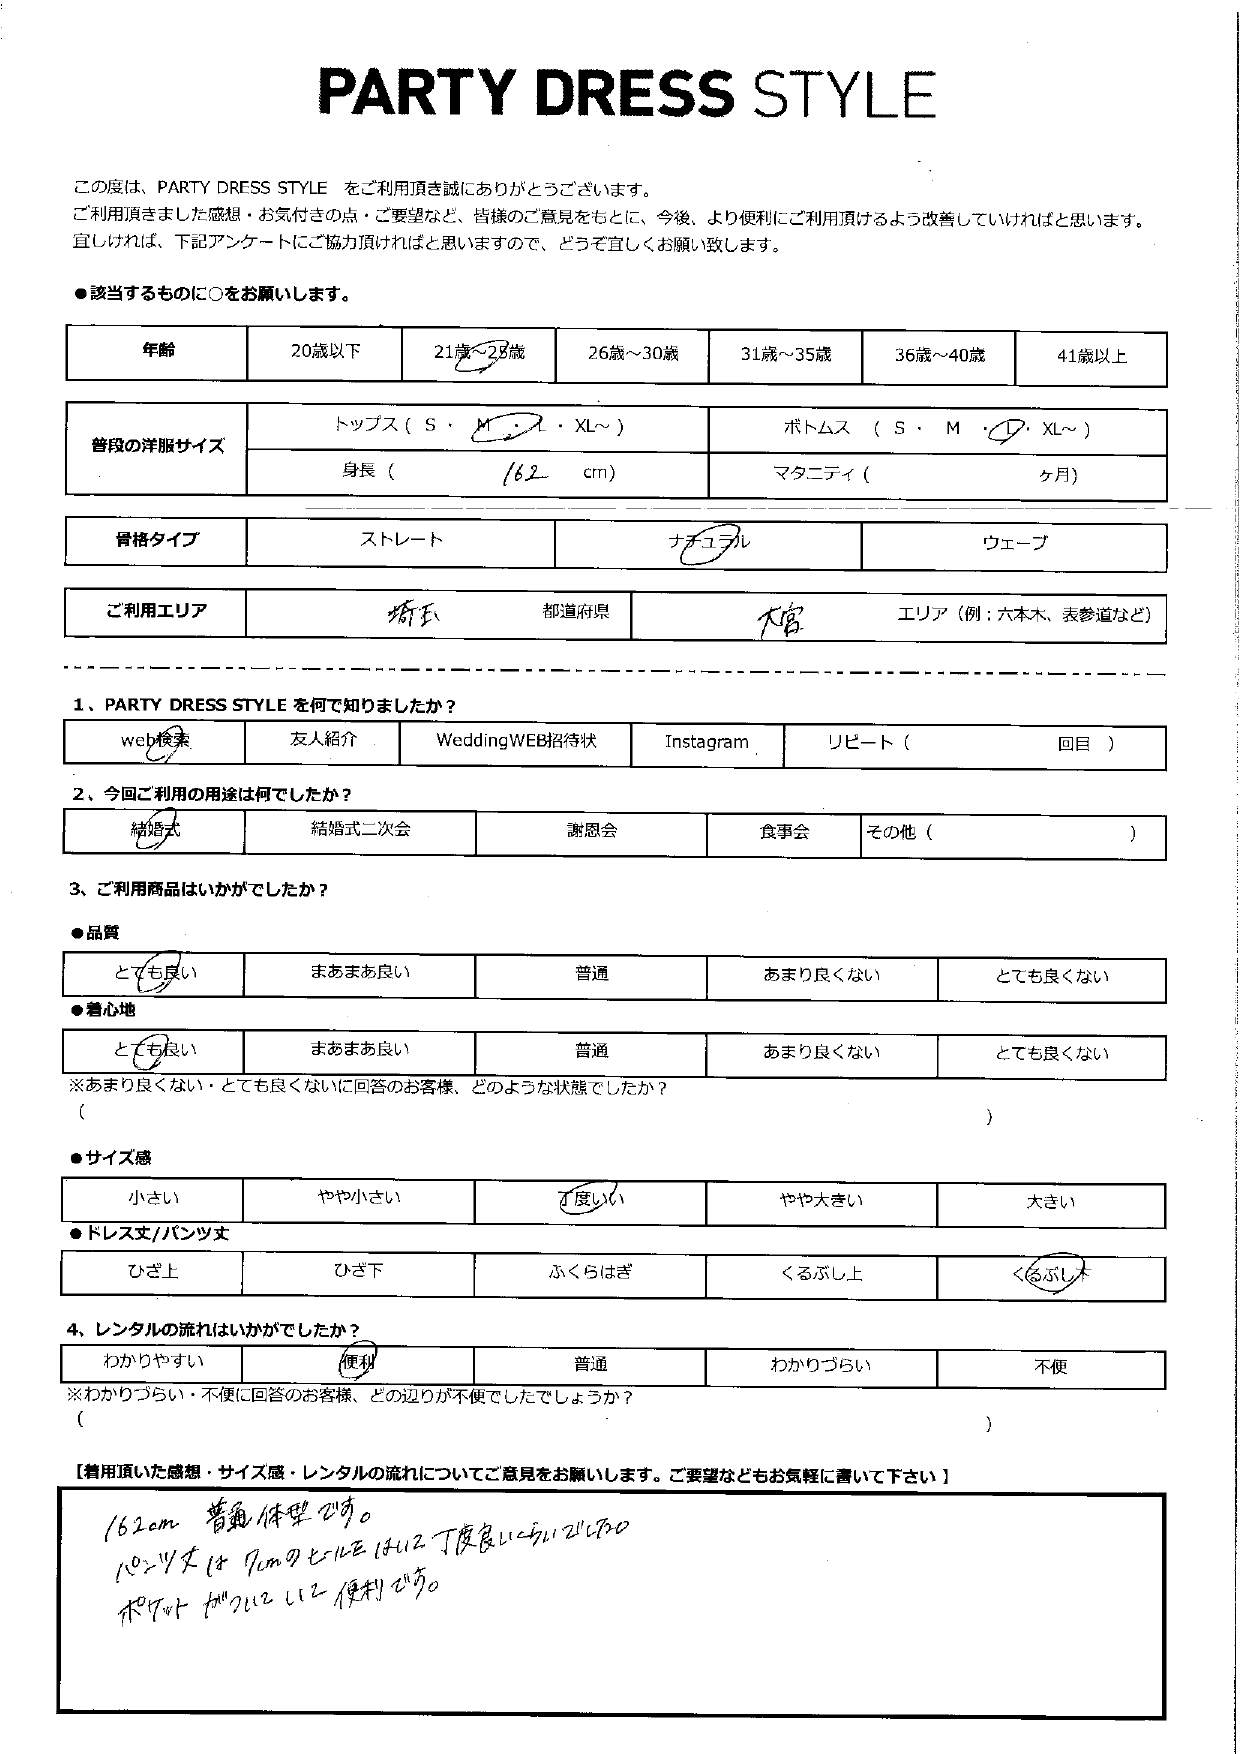 PARTY DRESS STYLE
この度は、PARTY DRESS STYLE をご利用頂き誠にありがとうございます。
ご利用頂きました感想・お気付きの点・ご要望など、皆様のご意見をもとに、今後、より便利にご利用頂けるよう改善していければと思います。
宜しければ、下記アンケートにご協力頂ければと思いますので、どうぞ宜しくお願い致します。
●該当するものに○をお願いします。
年齢 20歳以下 21歳～25歳 26歳～30歳 31歳～35歳 36歳～40歳 41歳以上
普段の洋服サイズ
トップス ( S ・ M ・ L ・ XL～ ) ボトムス ( S ・ M ・ L ・ XL～ )
身長 ( 162 cm) マタニティ ( ヶ月)
骨格タイプ ストレート ナチュラル ウェーブ
ご利用エリア 埼玉 都道府県 大宮 エリア（例：六本木、表参道など）
1、PARTY DRESS STYLE を何で知りましたか？
web検索 友人紹介 WeddingWEB招待状 Instagram リピート ( 回目 )
2、今回ご利用の用途は何でしたか？
結婚式 結婚式二次会 謝恩会 食事会 その他 ( )
3、ご利用商品はいかがでしたか？
●品質
とても良い まあまあ良い 普通 あまり良くない とても良くない
●着心地
とても良い まあまあ良い 普通 あまり良くない とても良くない
※あまり良くない・とても良くないに回答のお客様、どのような状態でしたか？
( )
●サイズ感
小さい やや小さい 丁度いい やや大きい 大きい
●ドレス丈/パンツ丈
ひざ上 ひざ下 ふくらはぎ くるぶし上 くるぶし下
4、レンタルの流れはいかがでしたか？
わかりやすい 便利 普通 わかりづらい 不便
※わかりづらい・不便に回答のお客様、どの辺りが不便でしたでしょうか？
( )
【着用頂いた感想・サイズ感・レンタルの流れについてご意見をお願いします。ご要望などもお気軽に書いて下さい】
162cm 普通体型です。
パンツ丈は 7cmのヒールをはいて丁度良いくらいでした。
ポケットがついていて便利です。